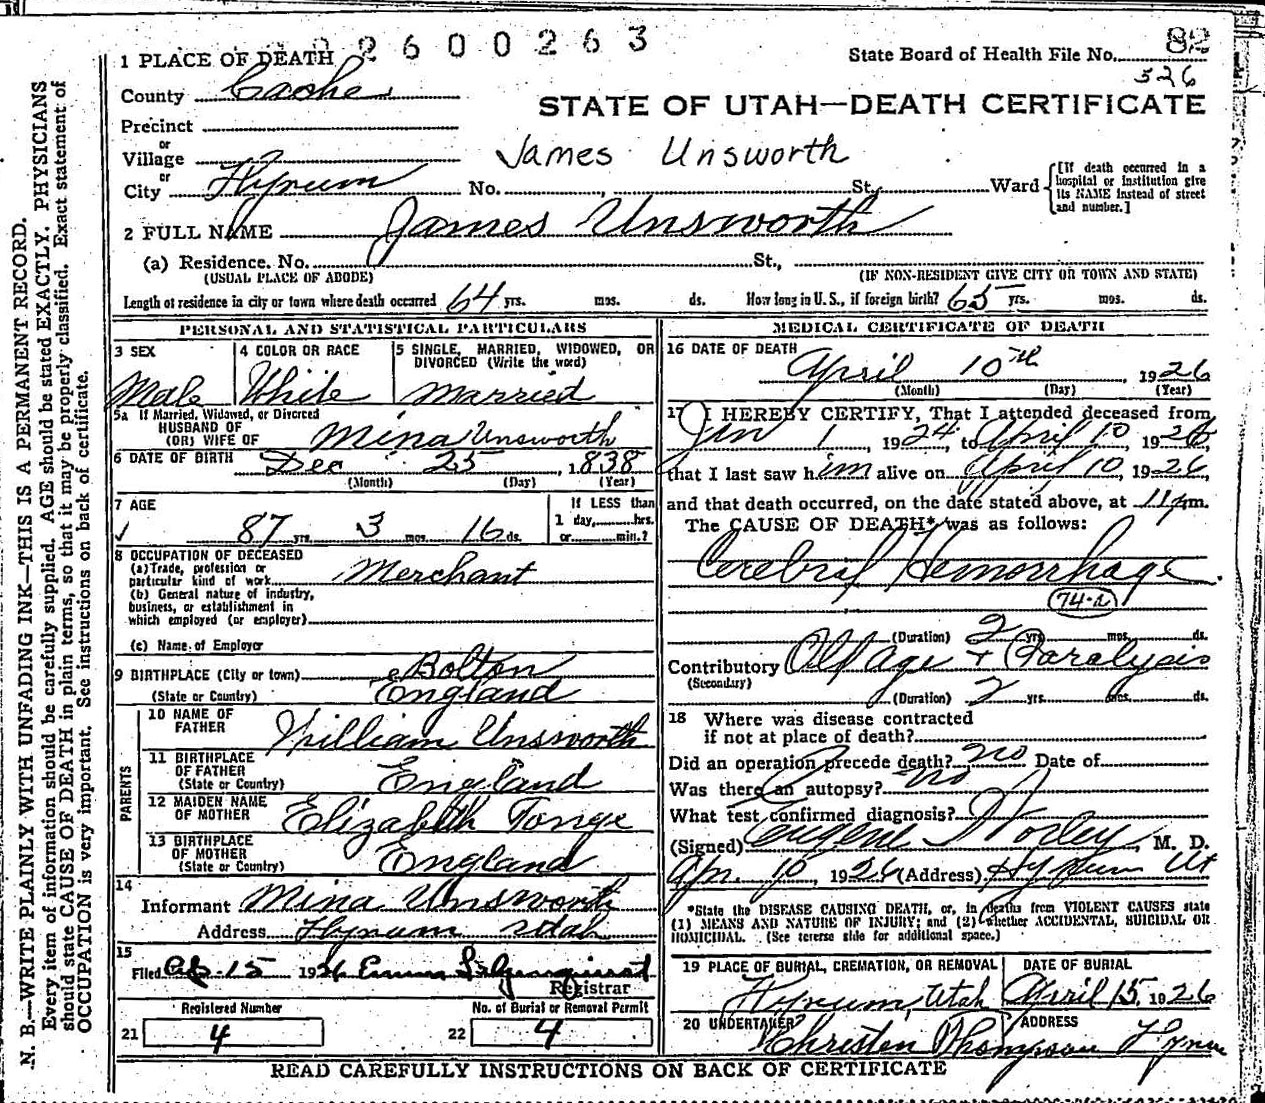 2600263
82
1 PLACE OF DEATH
State Board of Health File No.
326
County Cache
STATE OF UTAH—DEATH CERTIFICATE
Precinct
or
Village
James Unsworth
or
City Hyrum No. , St., Ward
[If death occurred in a hospital or institution give its NAME instead of street and number.]
2 FULL NAME James Unsworth
(a) Residence. No. St.,
(USUAL PLACE OF ABODE) (IF NON-RESIDENT GIVE CITY OR TOWN AND STATE)
Length of residence in city or town where death occurred 64 yrs. mos. ds. How long in U.S., if foreign birth? 65 yrs. mos. ds.
PERSONAL AND STATISTICAL PARTICULARS
3 SEX
Male
4 COLOR OR RACE
White
5 SINGLE, MARRIED, WIDOWED, OR
DIVORCED (Write the word)
Married
5a If Married, Widowed, or Divorced
HUSBAND OF
(OR) WIFE OF Mina Unsworth
6 DATE OF BIRTH Dec 25, 1838
(Month) (Day) (Year)
7 AGE
87 yrs. 3 mos. 16 ds.
If LESS than
1 day, hrs.
or min.?
8 OCCUPATION OF DECEASED
(a) Trade, profession or
particular kind of work Merchant
(b) General nature of industry,
business, or establishment in
which employed (or employer)
(c) Name of Employer
9 BIRTHPLACE (City or town) Bolton
(State or Country) England
PARENTS
10 NAME OF
FATHER William Unsworth
11 BIRTHPLACE
OF FATHER
(State or Country) England
12 MAIDEN NAME
OF MOTHER Elizabeth Tonge
13 BIRTHPLACE
OF MOTHER
(State or Country) England
14
Informant Mina Unsworth
Address Hyrum Utah
15
Filed Ap. 15 1926 Emma
Registrar
Registered Number
21 4
No. of Burial or Removal Permit
22 4
MEDICAL CERTIFICATE OF DEATH
16 DATE OF DEATH
April 10th 1926
(Month) (Day) (Year)
17 I HEREBY CERTIFY, That I attended deceased from
Jan 1, 1924, to April 10, 1926,
that I last saw him alive on April 10, 1926,
and that death occurred, on the date stated above, at 11 m.
The CAUSE OF DEATH* was as follows:
Cerebral Hemorrhage.
74-a
(Duration) 2 yrs. mos. ds.
Contributory Old age + Paralysis
(Secondary)
(Duration) 2 yrs. mos. ds.
18 Where was disease contracted
if not at place of death?
Did an operation precede death? no Date of
Was there an autopsy? no
What test confirmed diagnosis?
(Signed) Eugene Worley, M. D.
Apr. 10, 1926 (Address) Hyrum Ut
*State the DISEASE CAUSING DEATH, or, in deaths from VIOLENT CAUSES state
(1) MEANS AND NATURE OF INJURY; and (2) whether ACCIDENTAL, SUICIDAL OR
HOMICIDAL. (See reverse side for additional space.)
19 PLACE OF BURIAL, CREMATION, OR REMOVAL
Hyrum, Utah
DATE OF BURIAL
April 15, 1926
20 UNDERTAKER
Thompson
ADDRESS
READ CAREFULLY INSTRUCTIONS ON BACK OF CERTIFICATE
N. B.—WRITE PLAINLY WITH UNFADING INK—THIS IS A PERMANENT RECORD.
Every item of information should be carefully supplied. AGE should be stated EXACTLY. PHYSICIANS
should state CAUSE OF DEATH in plain terms, so that it may be properly classified. Exact statement of
OCCUPATION is very important. See instructions on back of certificate.